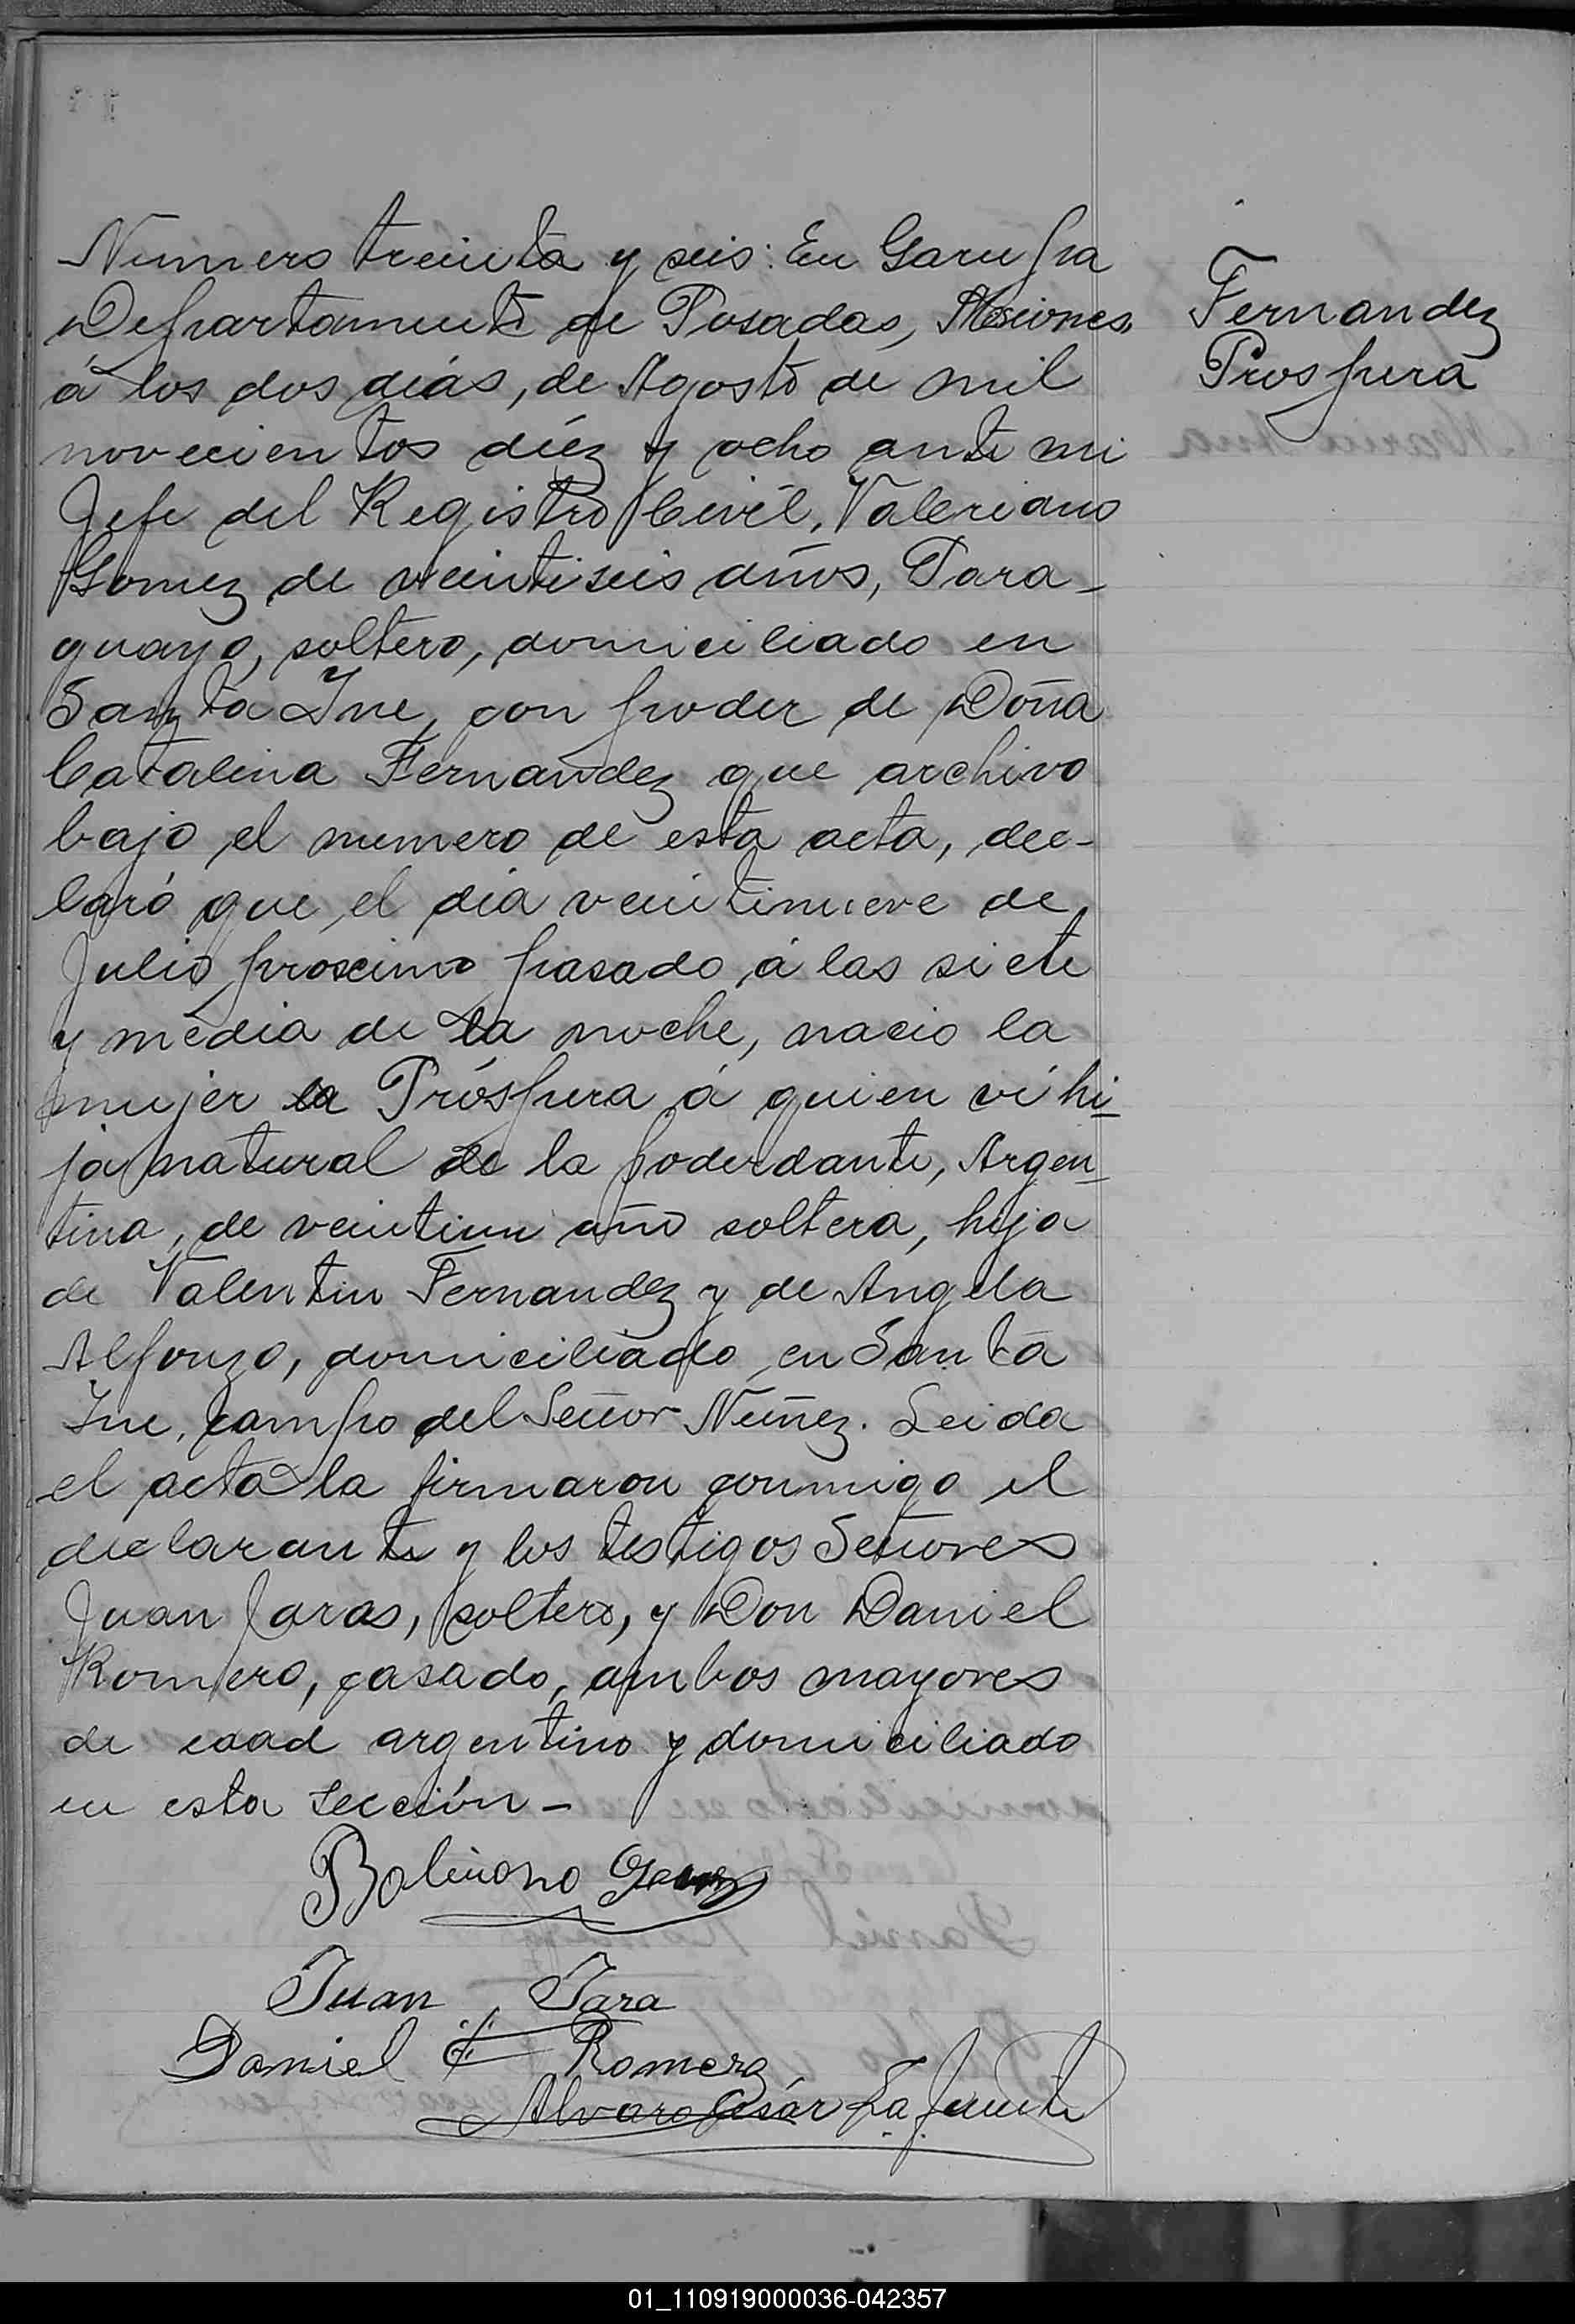 Numero treinta y seis: En Garupa
Departamento de Posadas, Misiones
á los dos dias, de Agosto de mil
novecientos diéz y ocho ante mi
Jefe del Registro Civíl, Valeriano
Gomez de veintiseis años, Para-
guayo, soltero, domiciliado en
Santa Ine, con poder de Doña
Catalina Fernandez que archivo
bajo el numero de esta acta, dec-
laró que el dia veintinueve de
Julio proscimo pasado á las siete
y media de la noche, nacio la
mujer la Próspera á quien ví hi-
ja natural de la poderdante, Argen-
tina, de veintiun año soltera, hija
de Valentin Fernandez y de Angela
Alfonzo, domiciliado en Santa
Ine, campo del Señor Núñez. Leida
el acta la firmaron conmigo el
declarante y los testigos Señores
Juan Jaras, soltero, y Don Daniel
Romero, casado, ambos mayores
de edad argentino y domiciliado
en esta sección-
Baliriano Gomez
Juan Jara
Daniel Romero
Alvaro César Lafuente
Fernandez
Prospera
01_110919000036-042357